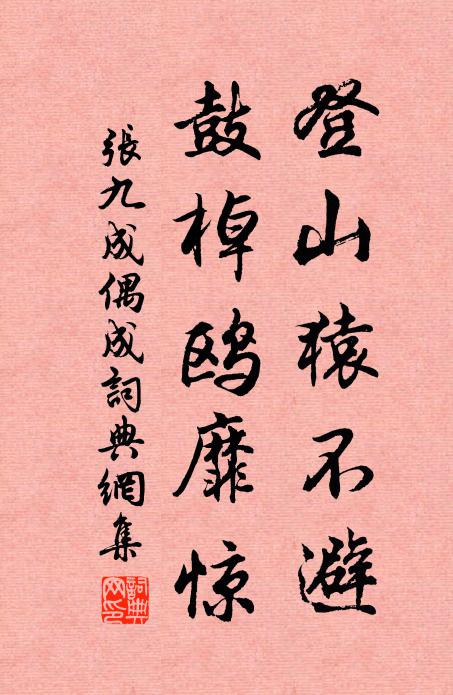 登山猿不避
鼓棹鸥靡惊
張九成偶成詞典網集
詞典
网